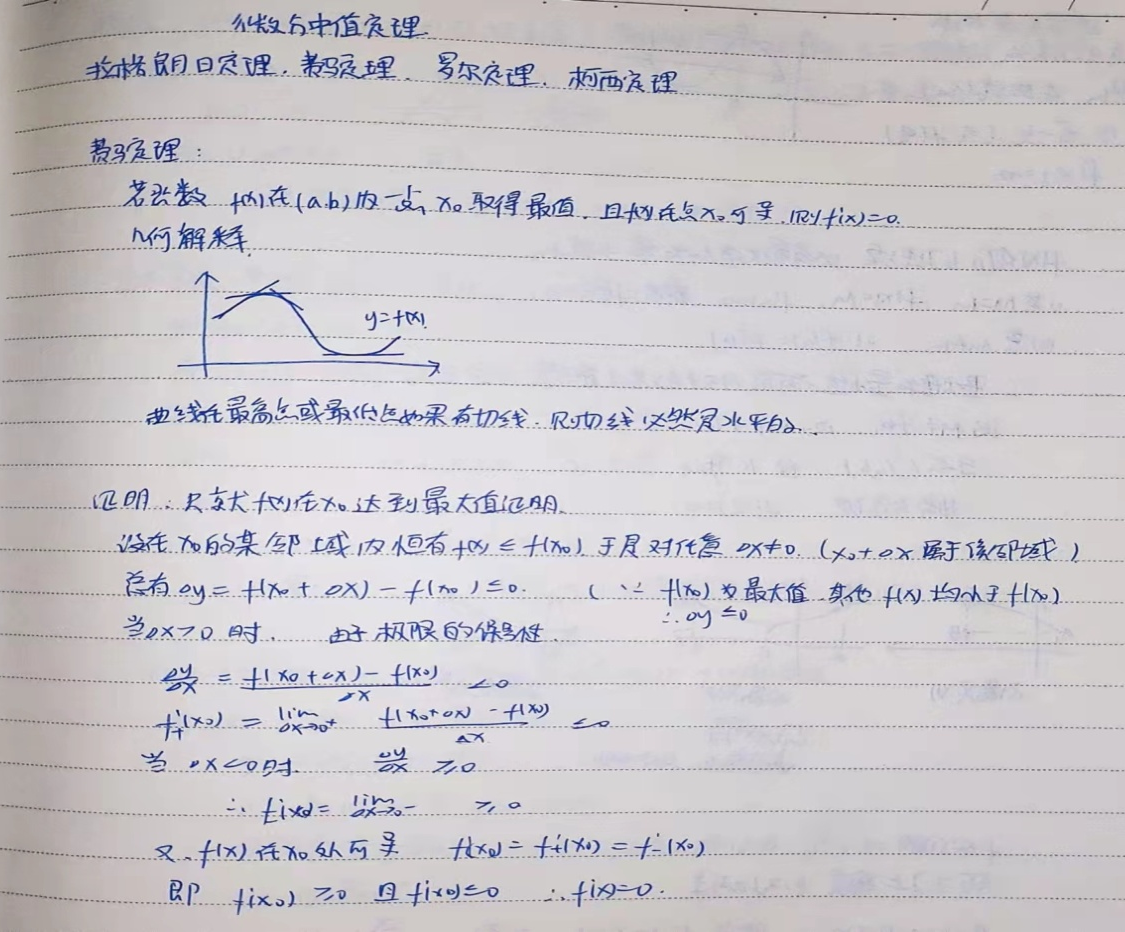 微分中值定理
拉格朗日定理、费马定理、罗尔定理、柯西定理
费马定理：
若函数 f(x)在(a,b)内一点 x₀ 取得最值，且f(x)在点x₀可导，则f'(x)=0.
几何解释
y=f(x)
曲线在最高点或最低点如果有切线，则切线必然是水平的.
证明：只就f(x)在x₀达到最大值证明.
设在x₀的某邻域内恒有f(x)≤f(x₀) 于是对任意 Δx≠0.（x₀+Δx 属于该邻域）
总有Δy=f(x₀+Δx)-f(x₀)≤0. (∵ f(x₀)为最大值 其他f(x)均小于f(x₀)
∴Δy≤0
当Δx>0时. 由于极限的保号性.
Δy/Δx = f(x₀+Δx)-f(x₀)/Δx ≤0
f'₊(x₀) = lim Δx→0⁺ f(x₀+Δx)-f(x₀)/Δx ≤0
当Δx<0时. Δy/Δx ≥0
∴ f'(x₀)= lim Δx→0⁻ ≥0
又. f(x)在x₀处可导 f'(x₀)=f'₊(x₀)=f'₋(x₀)
即 f'(x₀)≥0 且f'(x₀)≤0 ∴f'(x)=0.